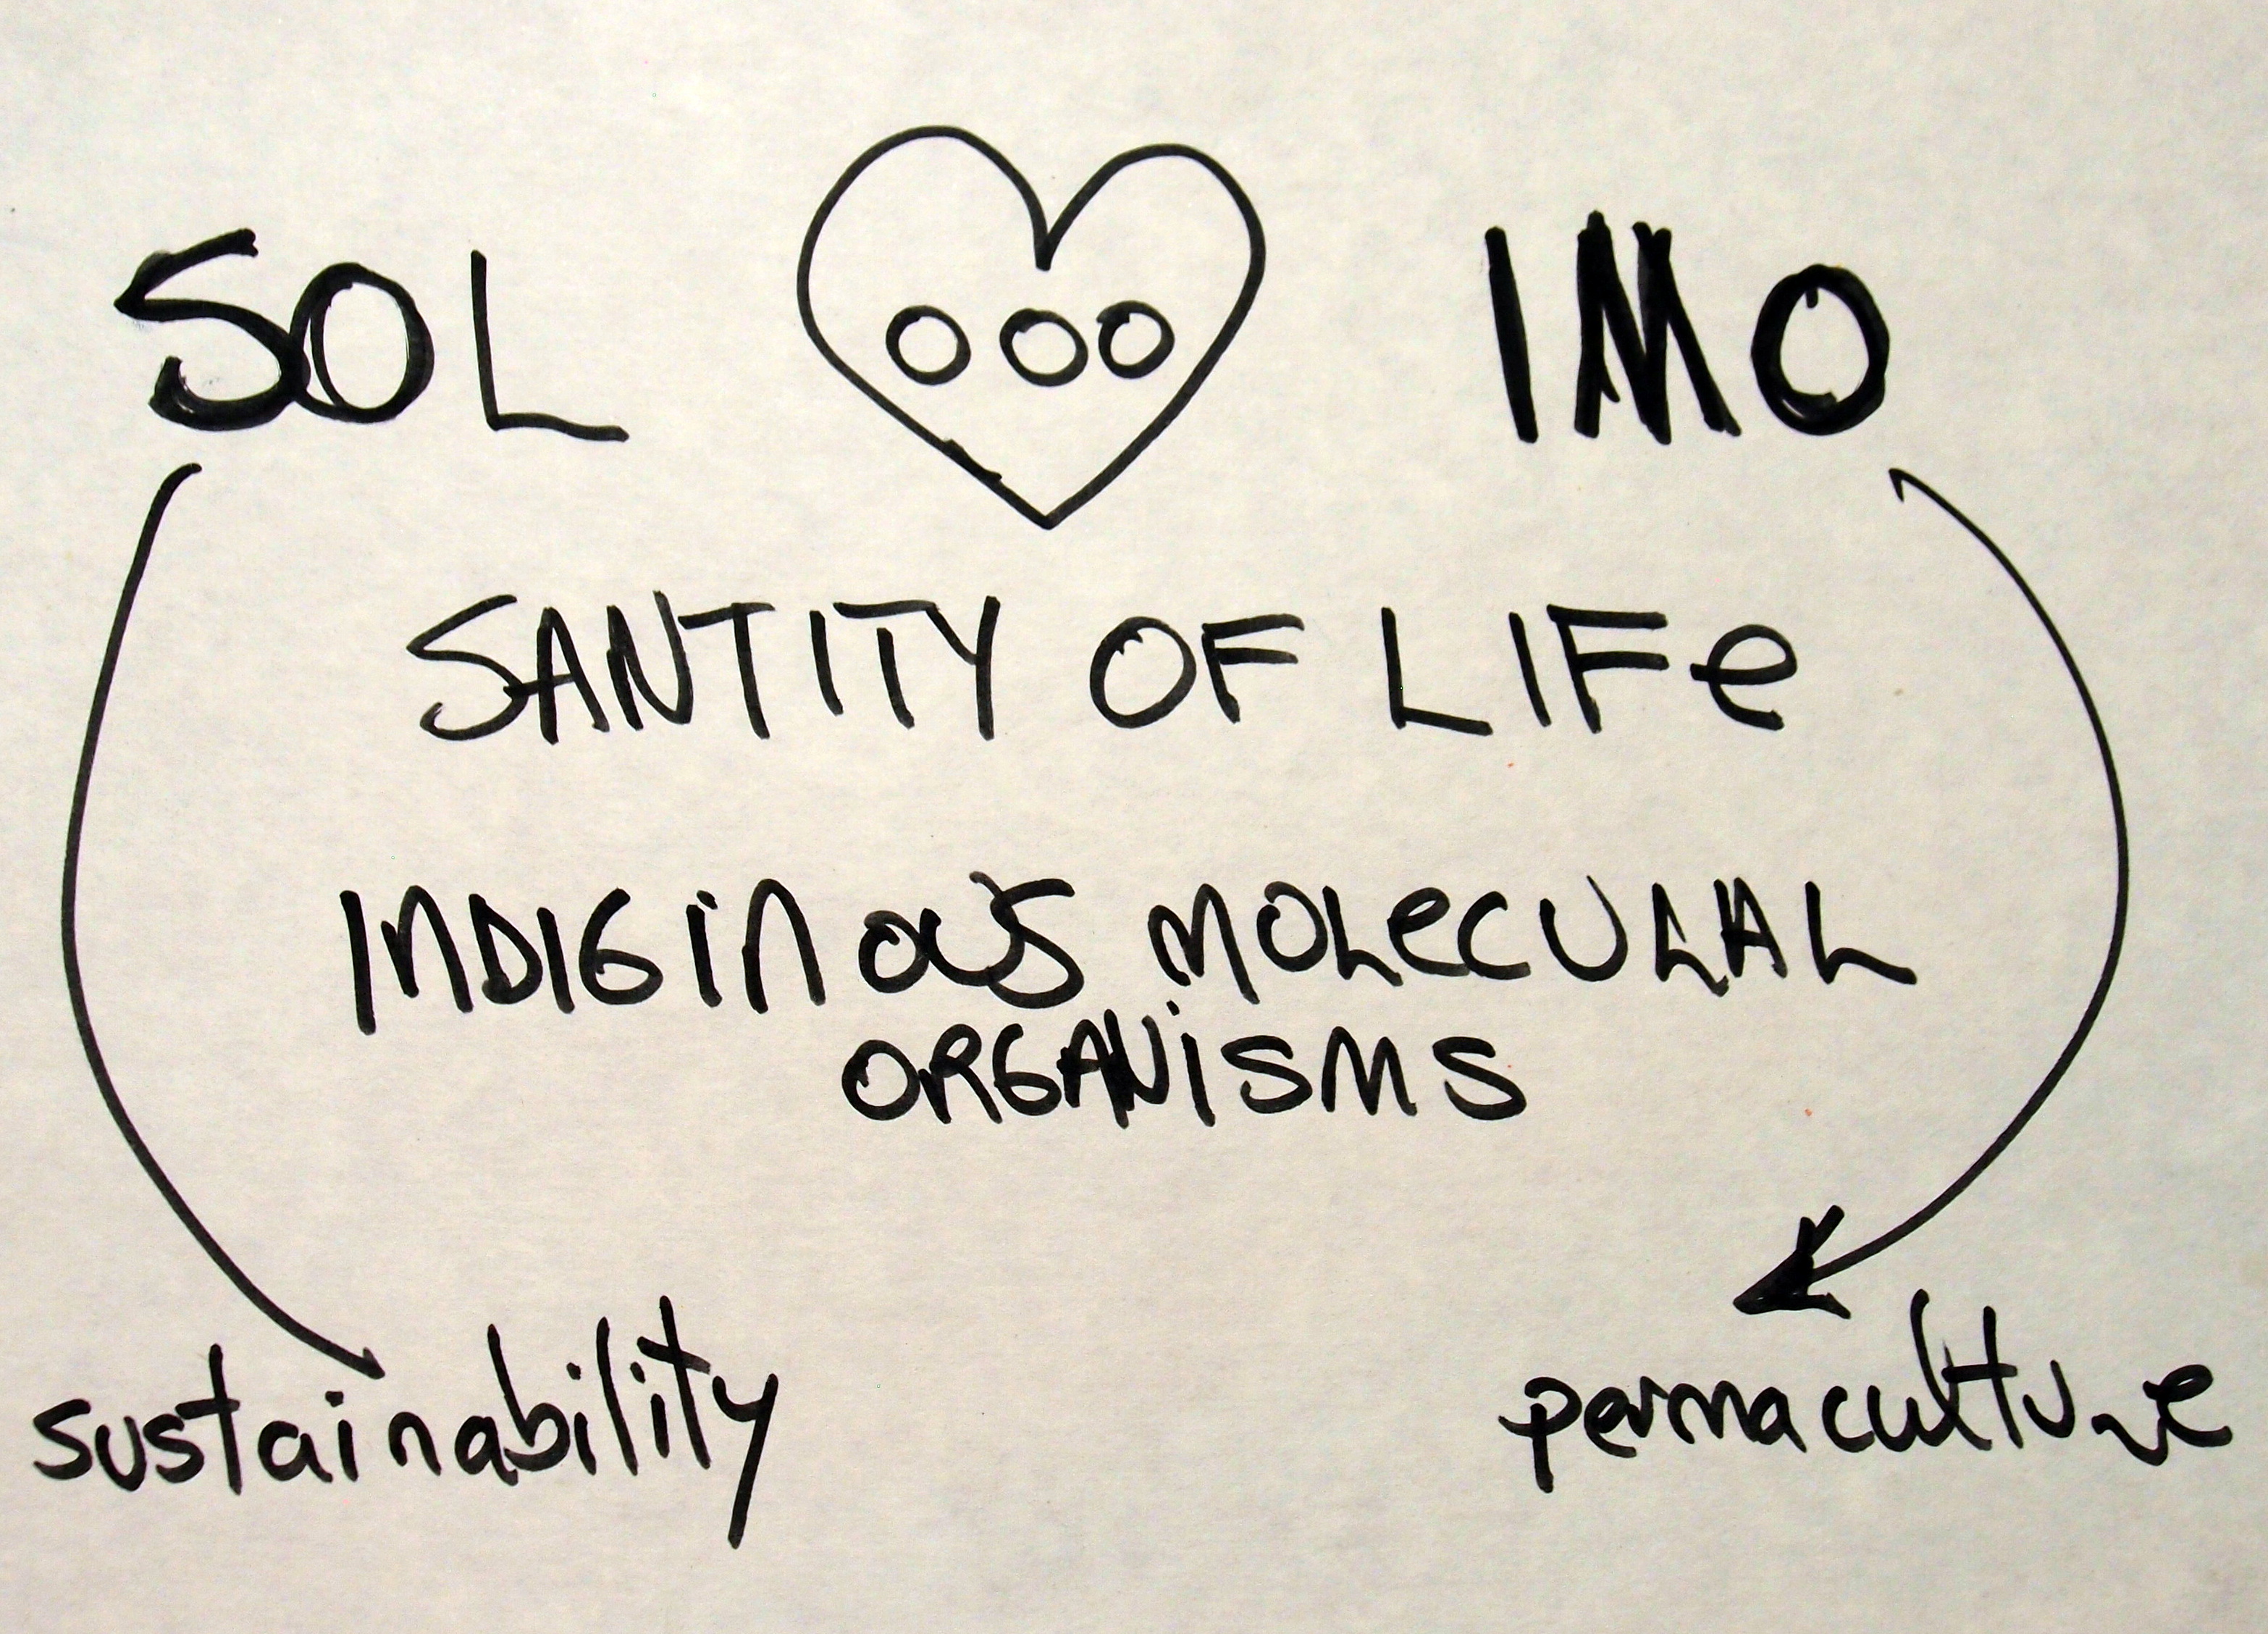 SOL IMO
SANTITY OF LIFe
INDIGINOUS MOLeCULAL
ORGANiSMS
sustainability
permaculture